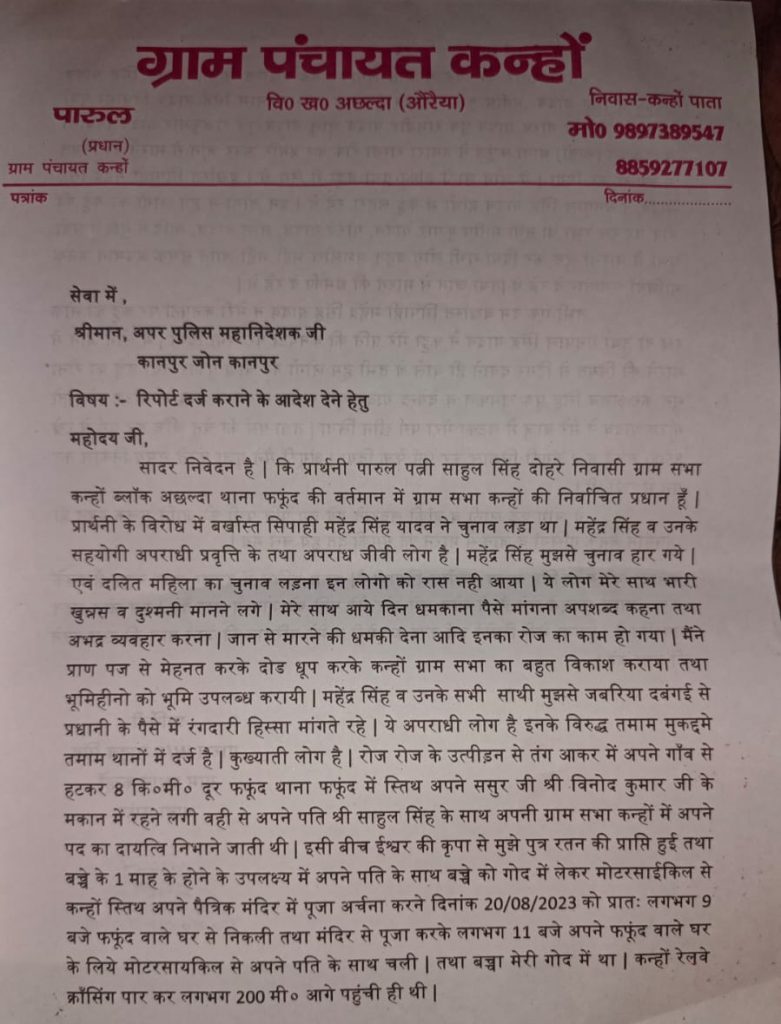 ग्राम पंचायत कन्हों
वि0 ख0 अछल्दा (औरैया)
निवास-कन्हों पाता
पारुल
मो0 9897389547
(प्रधान)
ग्राम पंचायत कन्हों
8859277107
पत्रांक
दिनांक.....................
सेवा में ,
श्रीमान, अपर पुलिस महानिदेशक जी
कानपुर जोन कानपुर
विषय :- रिपोर्ट दर्ज कराने के आदेश देने हेतु
महोदय जी,
सादर निवेदन है | कि प्रार्थिनी पारुल पत्नी साहुल सिंह दोहरे निवासी ग्राम सभा
कन्हों ब्लॉक अछल्दा थाना फफूंद की वर्तमान में ग्राम सभा कन्हों की निर्वाचित प्रधान हूँ |
प्रार्थिनी के विरोध में बर्खास्त सिपाही महेंद्र सिंह यादव ने चुनाव लड़ा था | महेंद्र सिंह व उनके
सहयोगी अपराधी प्रवृत्ति के तथा अपराध जीवी लोग है | महेंद्र सिंह मुझसे चुनाव हार गये |
एवं दलित महिला का चुनाव लड़ना इन लोगो को रास नही आया | ये लोग मेरे साथ भारी
खुन्नस व दुश्मनी मानने लगे | मेरे साथ आये दिन धमकाना पैसे मांगना अपशब्द कहना तथा
अभद्र व्यवहार करना | जान से मारने की धमकी देना आदि इनका रोज का काम हो गया | मैंने
प्राण पज से मेहनत करके दोड धूप करके कन्हों ग्राम सभा का बहुत विकाश कराया तथा
भूमिहीनो को भूमि उपलब्ध करायी | महेंद्र सिंह व उनके सभी साथी मुझसे जबरिया दबंगई से
प्रधानी के पैसे में रंगदारी हिस्सा मांगते रहे | ये अपराधी लोग है इनके विरुद्ध तमाम मुकद्दमे
तमाम थानों में दर्ज है | कुख्याती लोग है | रोज रोज के उत्पीड़न से तंग आकर में अपने गाँव से
हटकर 8 कि०मी० दूर फफूंद थाना फफूंद में स्तिथ अपने ससुर जी श्री विनोद कुमार जी के
मकान में रहने लगी वही से अपने पति श्री साहुल सिंह के साथ अपनी ग्राम सभा कन्हों में अपने
पद का दायत्वि निभाने जाती थी | इसी बीच ईश्वर की कृपा से मुझे पुत्र रतन की प्राप्ति हुई तथा
बच्चे के 1 माह के होने के उपलक्ष्य में अपने पति के साथ बच्चे को गोद में लेकर मोटरसाईकिल से
कन्हों स्तिथ अपने पैत्रिक मंदिर में पूजा अर्चना करने दिनांक 20/08/2023 को प्रातः लगभग 9
बजे फफूंद वाले घर से निकली तथा मंदिर से पूजा करके लगभग 11 बजे अपने फफूंद वाले घर
के लिये मोटरसायकिल से अपने पति के साथ चली | तथा बच्चा मेरी गोद में था | कन्हों रेलवे
क्रॉसिंग पार कर लगभग 200 मी० आगे पहुंची ही थी |